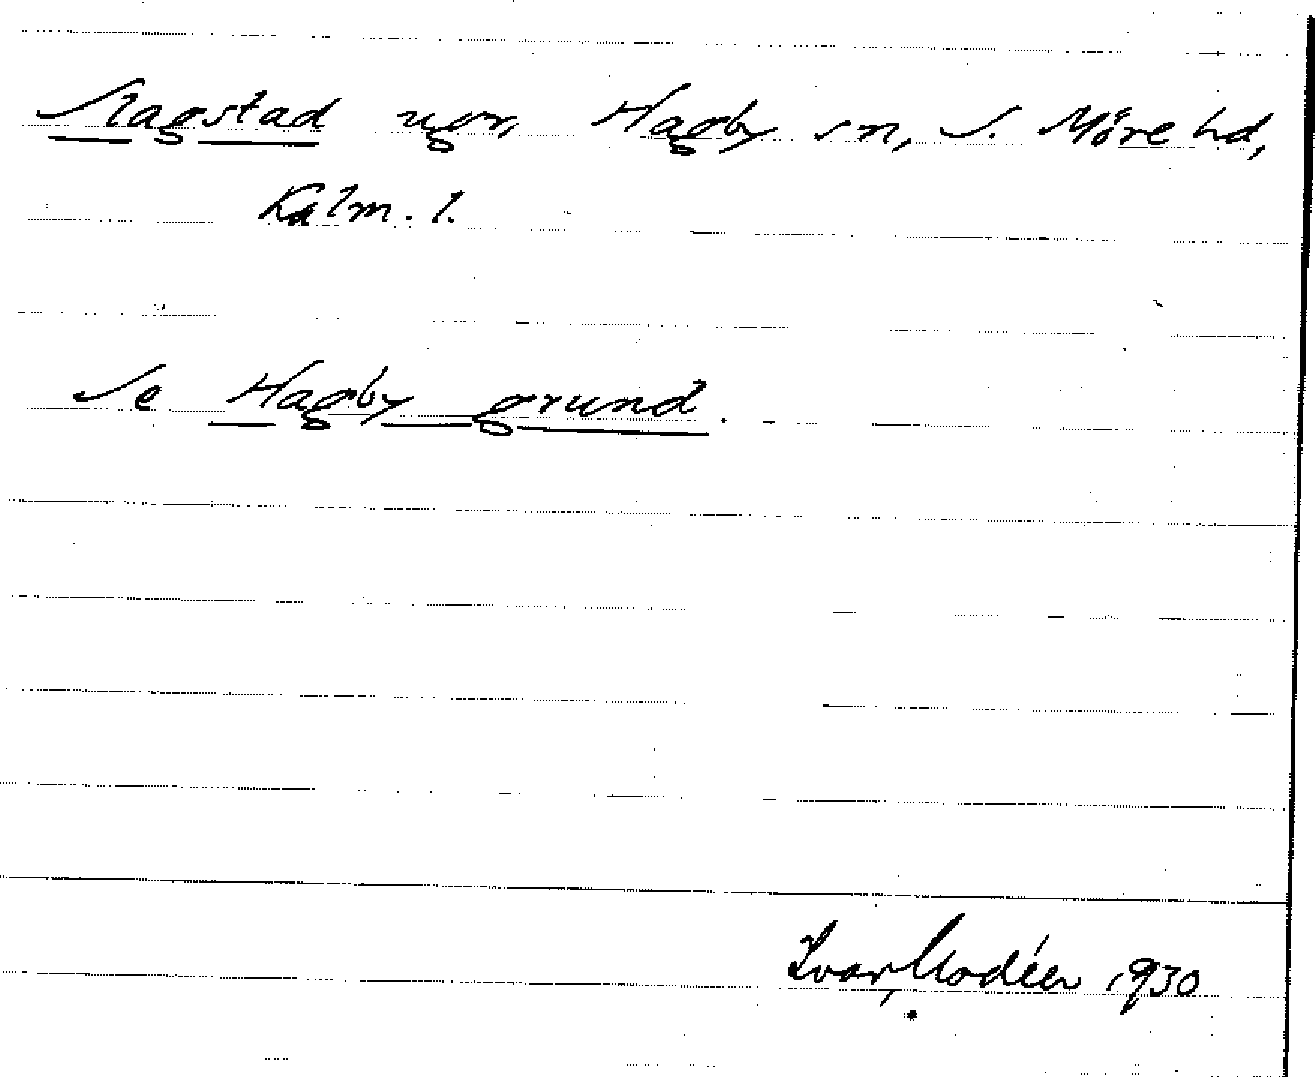 Slagstad ugr, Hagby sn, S. Möre hd,
Kalm. l.
Se Hagby grund.
Ivar Modéer 1930